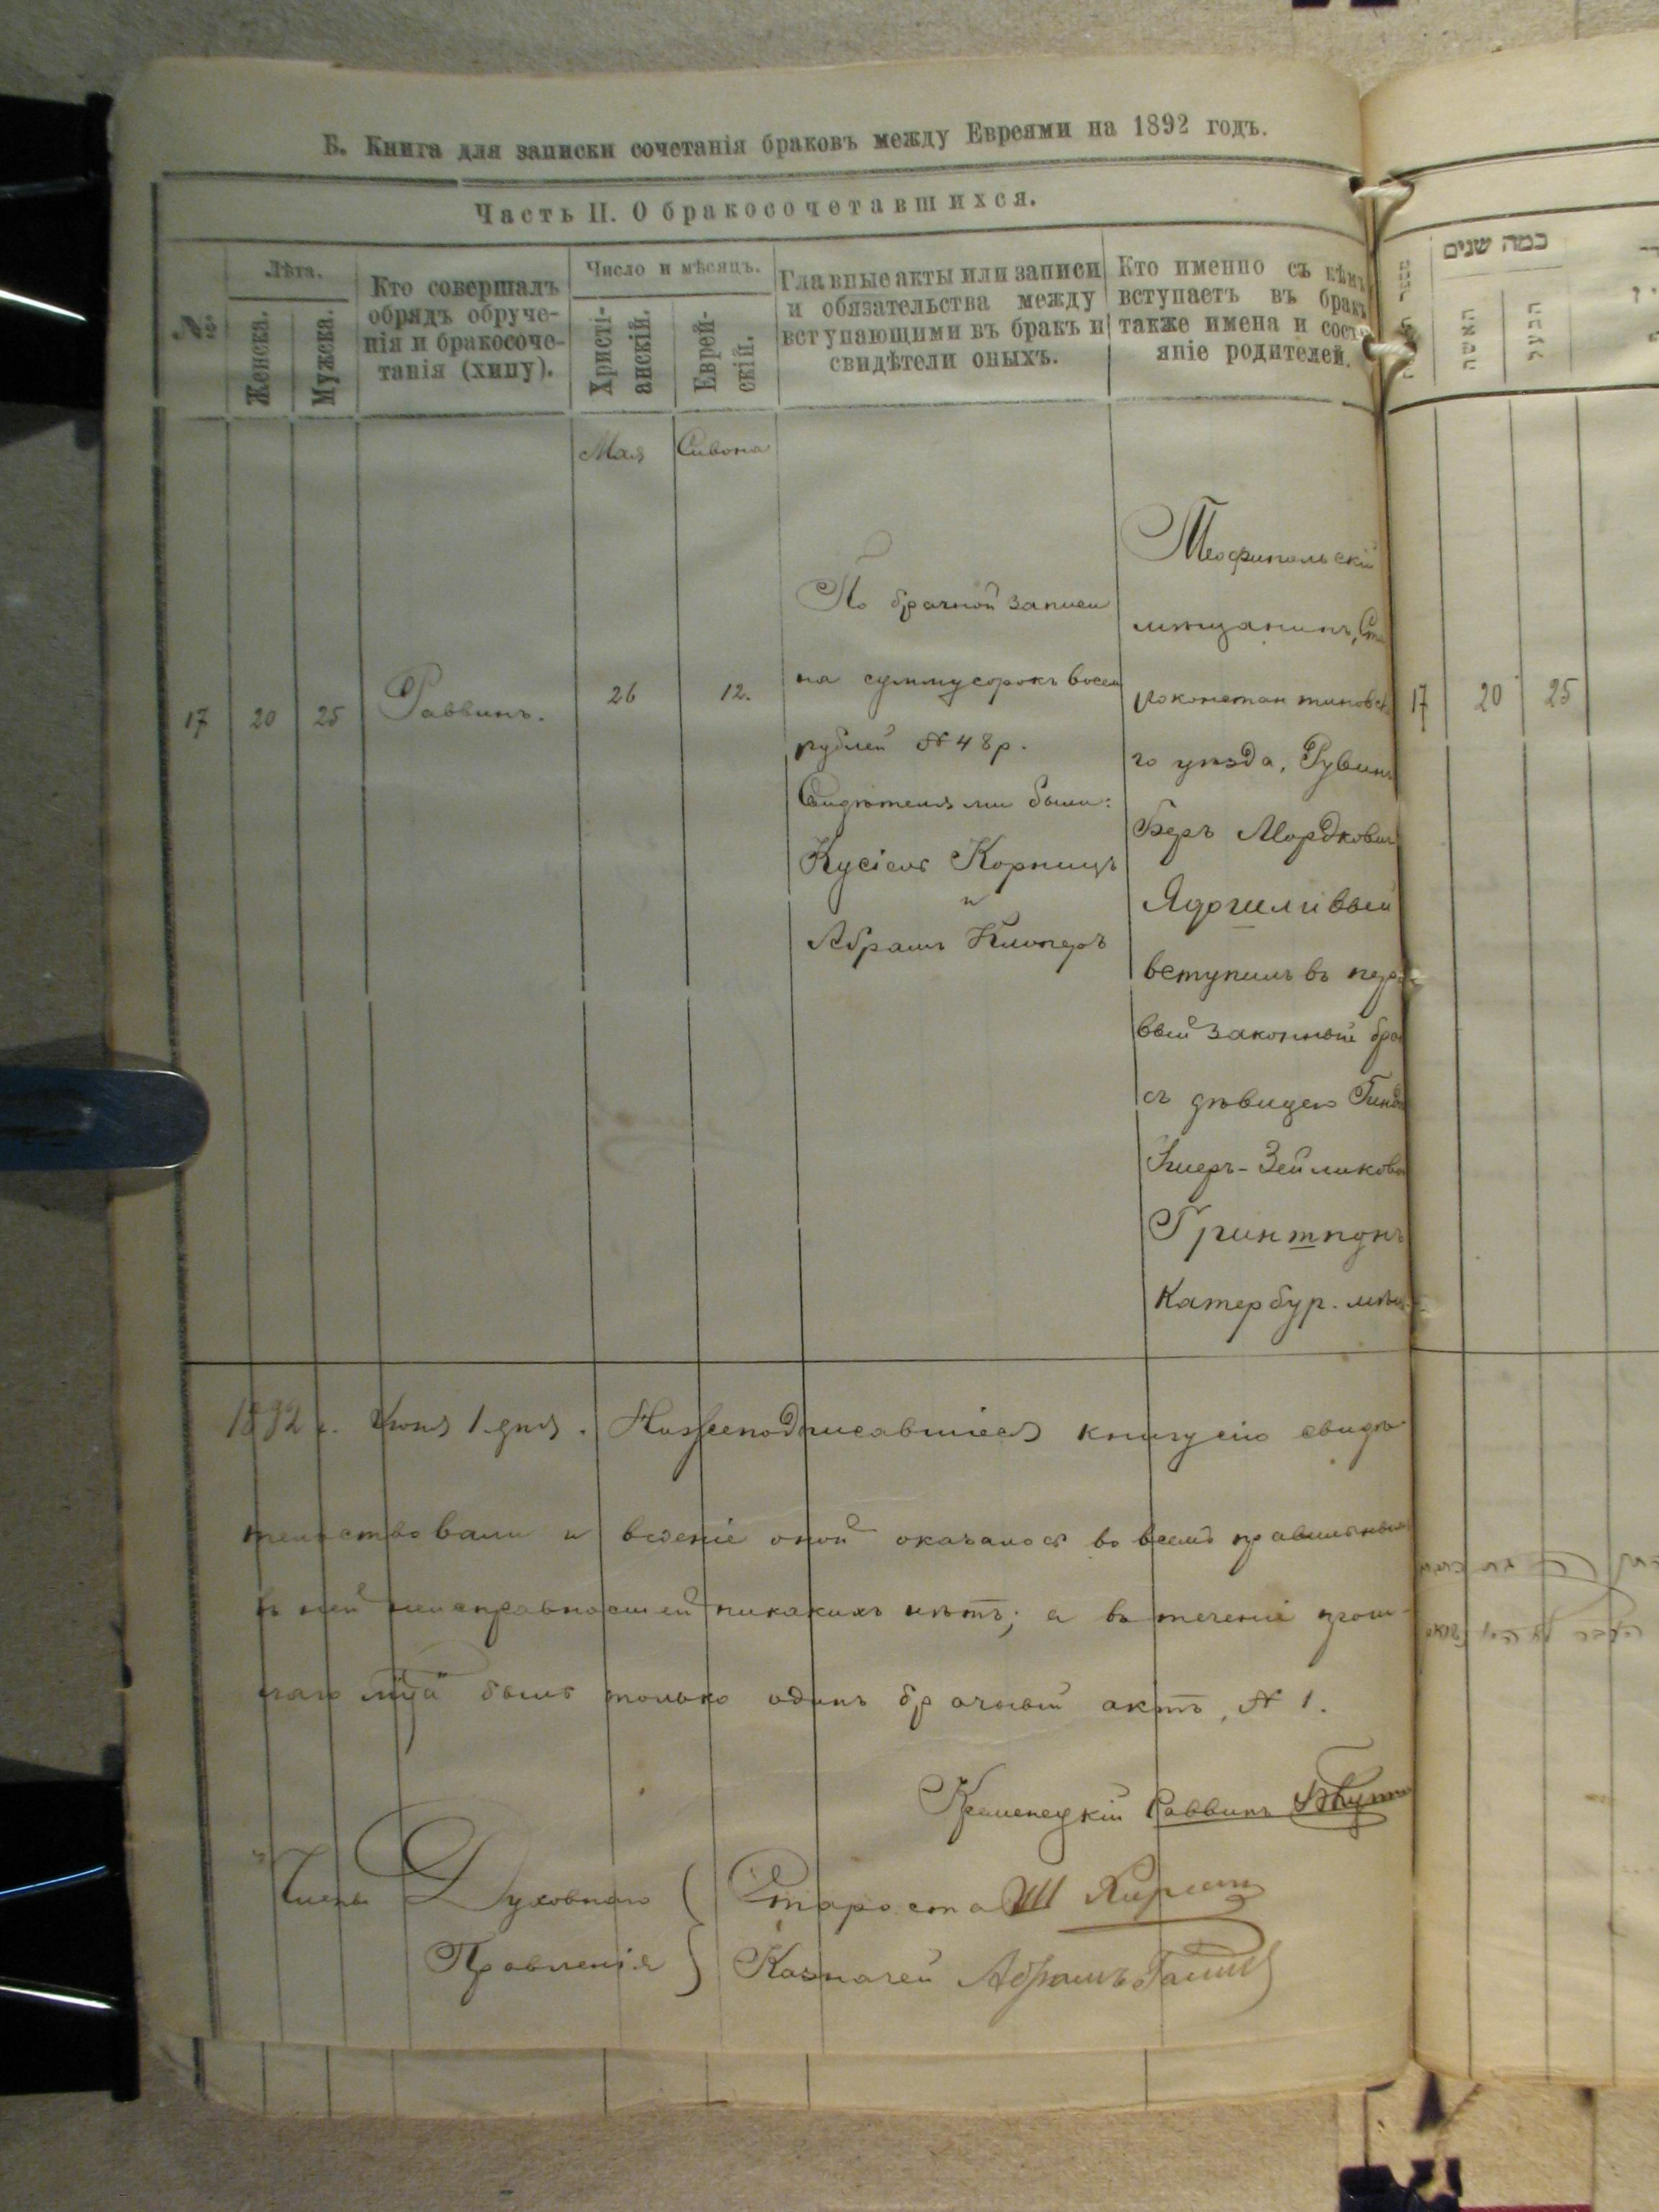 Б. Книга для записки сочетанія браковъ между Евреями на 1892 годъ.
Часть II. О бракосочетавшихся.
№
Лѣта.
Женска.
Мужска.
Кто совершалъ
обрядъ обруче-
нія и бракосоче-
танія (хипу).
Число и мѣсяцъ.
Христі-
анскій.
Еврей-
скій.
Главные акты или записи
и обязательства между
вступающими въ бракъ и
свидѣтели оныхъ.
Кто именно съ кѣмъ
вступаетъ въ бракъ
также имена и сост
яніе родителей.
Мая
Сивона
17
20
25
Раввинъ.
26
12.
По брачной записи
на сумму сорокъ восем
рублей № 48 р.
Свидѣтелями были:
Кусіель Корницъ
и
Абрамъ Клигеръ
Теофипольскій
мѣщанинъ, Ста
роконстантиновска
го уѣзда, Рувинъ
Беръ Мордковичъ
вступилъ въ пер
вый законный бра
съ дѣвицею
Катербур. мѣщ.
1892 г. Іюня 1 дня. Нижеподписавшіеся книгу сію свидѣ
тельствовали и веденіе оной оказалось во всемъ правильнымъ
въ ней неисправностей никакихъ нѣтъ; а въ теченіе прош-
лаго мца былъ только одинъ брачный актъ, № 1.
Кременецкій Раввинъ
Члены Духовнаго
Правленія
Староста Ш
Казначей Абрамъ
כמה שנים
האשה
הבעל
17
20
25